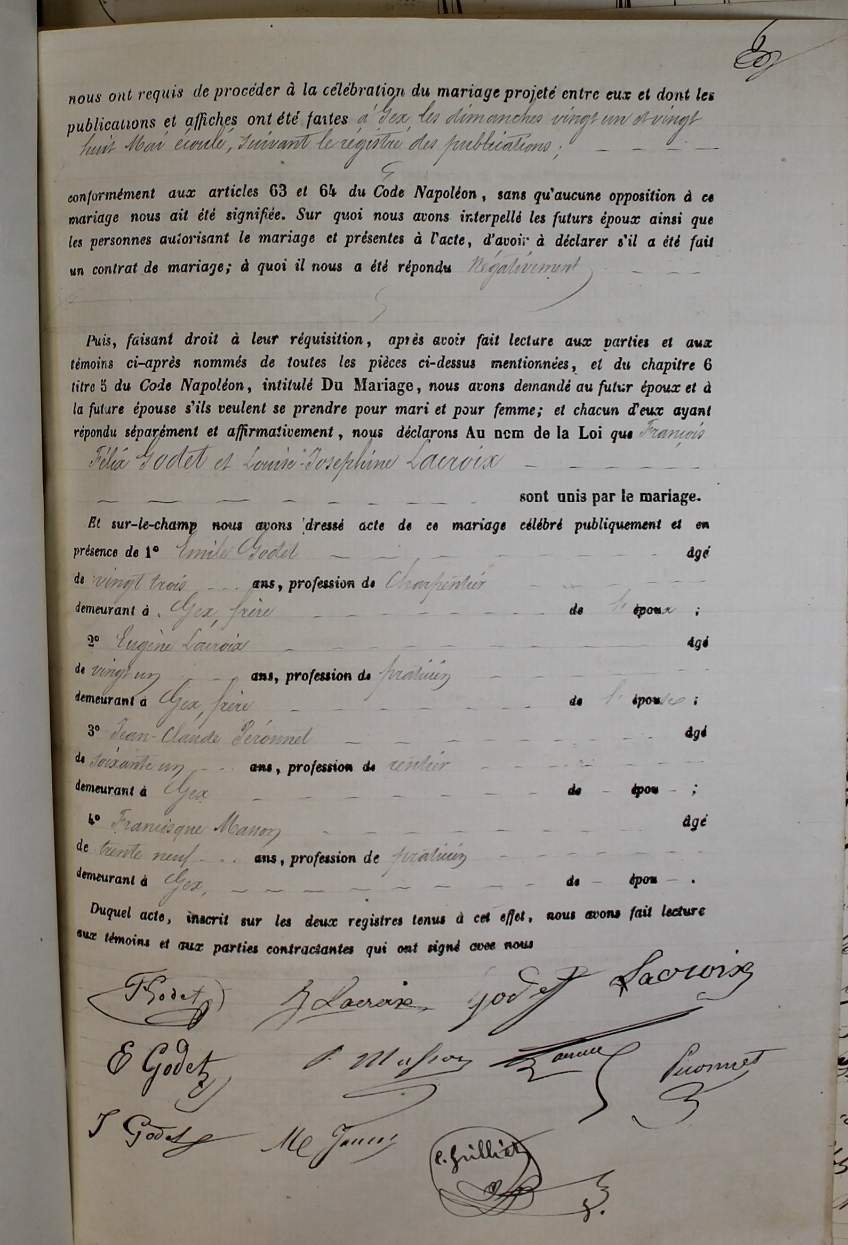 nous ont requis de procéder à la célébration du mariage projeté entre eux et dont les
publications et affiches ont été faites à Gex les dimanches vingt un et vingt
huit Mai écoulé, suivant le registre des publications;
conformément aux articles 63 et 64 du Code Napoléon, sans qu'aucune opposition à ce
mariage nous ait été signifiée. Sur quoi nous avons interpellé les futurs époux ainsi que
les personnes autorisant le mariage et présentes à l'acte, d'avoir à déclarer s'il a été fait
un contrat de mariage; à quoi il nous a été répondu Négativement
Puis, faisant droit à leur réquisition, après avoir fait lecture aux parties et aux
témoins ci-après nommés de toutes les pièces ci-dessus mentionnées, et du chapitre 6
titre 5 du Code Napoléon, intitulé Du Mariage, nous avons demandé au futur époux et à
la future épouse s'ils veulent se prendre pour mari et pour femme; et chacun d'eux ayant
répondu séparément et affirmativement, nous déclarons Au nom de la Loi que François
Félix Godet et Louise-Josephine Lacroix
sont unis par le mariage.
Et sur-le-champ nous avons dressé acte de ce mariage célébré publiquement et en
présence de 1º Emile Godet âgé
de vingt trois ans, profession de Charpentier
demeurant à Gex, frère de l'époux ;
2º Eugène Lacroix âgé
de vingt un ans, profession de praticien
demeurant à Gex, frère de l'épouse ;
3º Jean-Claude Péronnet âgé
de soixante un ans, profession de rentier
demeurant à Gex de - épou - ;
4º Francisque Masson âgé
de trente neuf ans, profession de praticien
demeurant à Gex, de - épou - .
Duquel acte, inscrit sur les deux registres tenus à cet effet, nous avons fait lecture
aux témoins et aux parties contractantes qui ont signé avec nous
F Godet Lacroix Godet Lacroix
E Godet Masson
J Godet